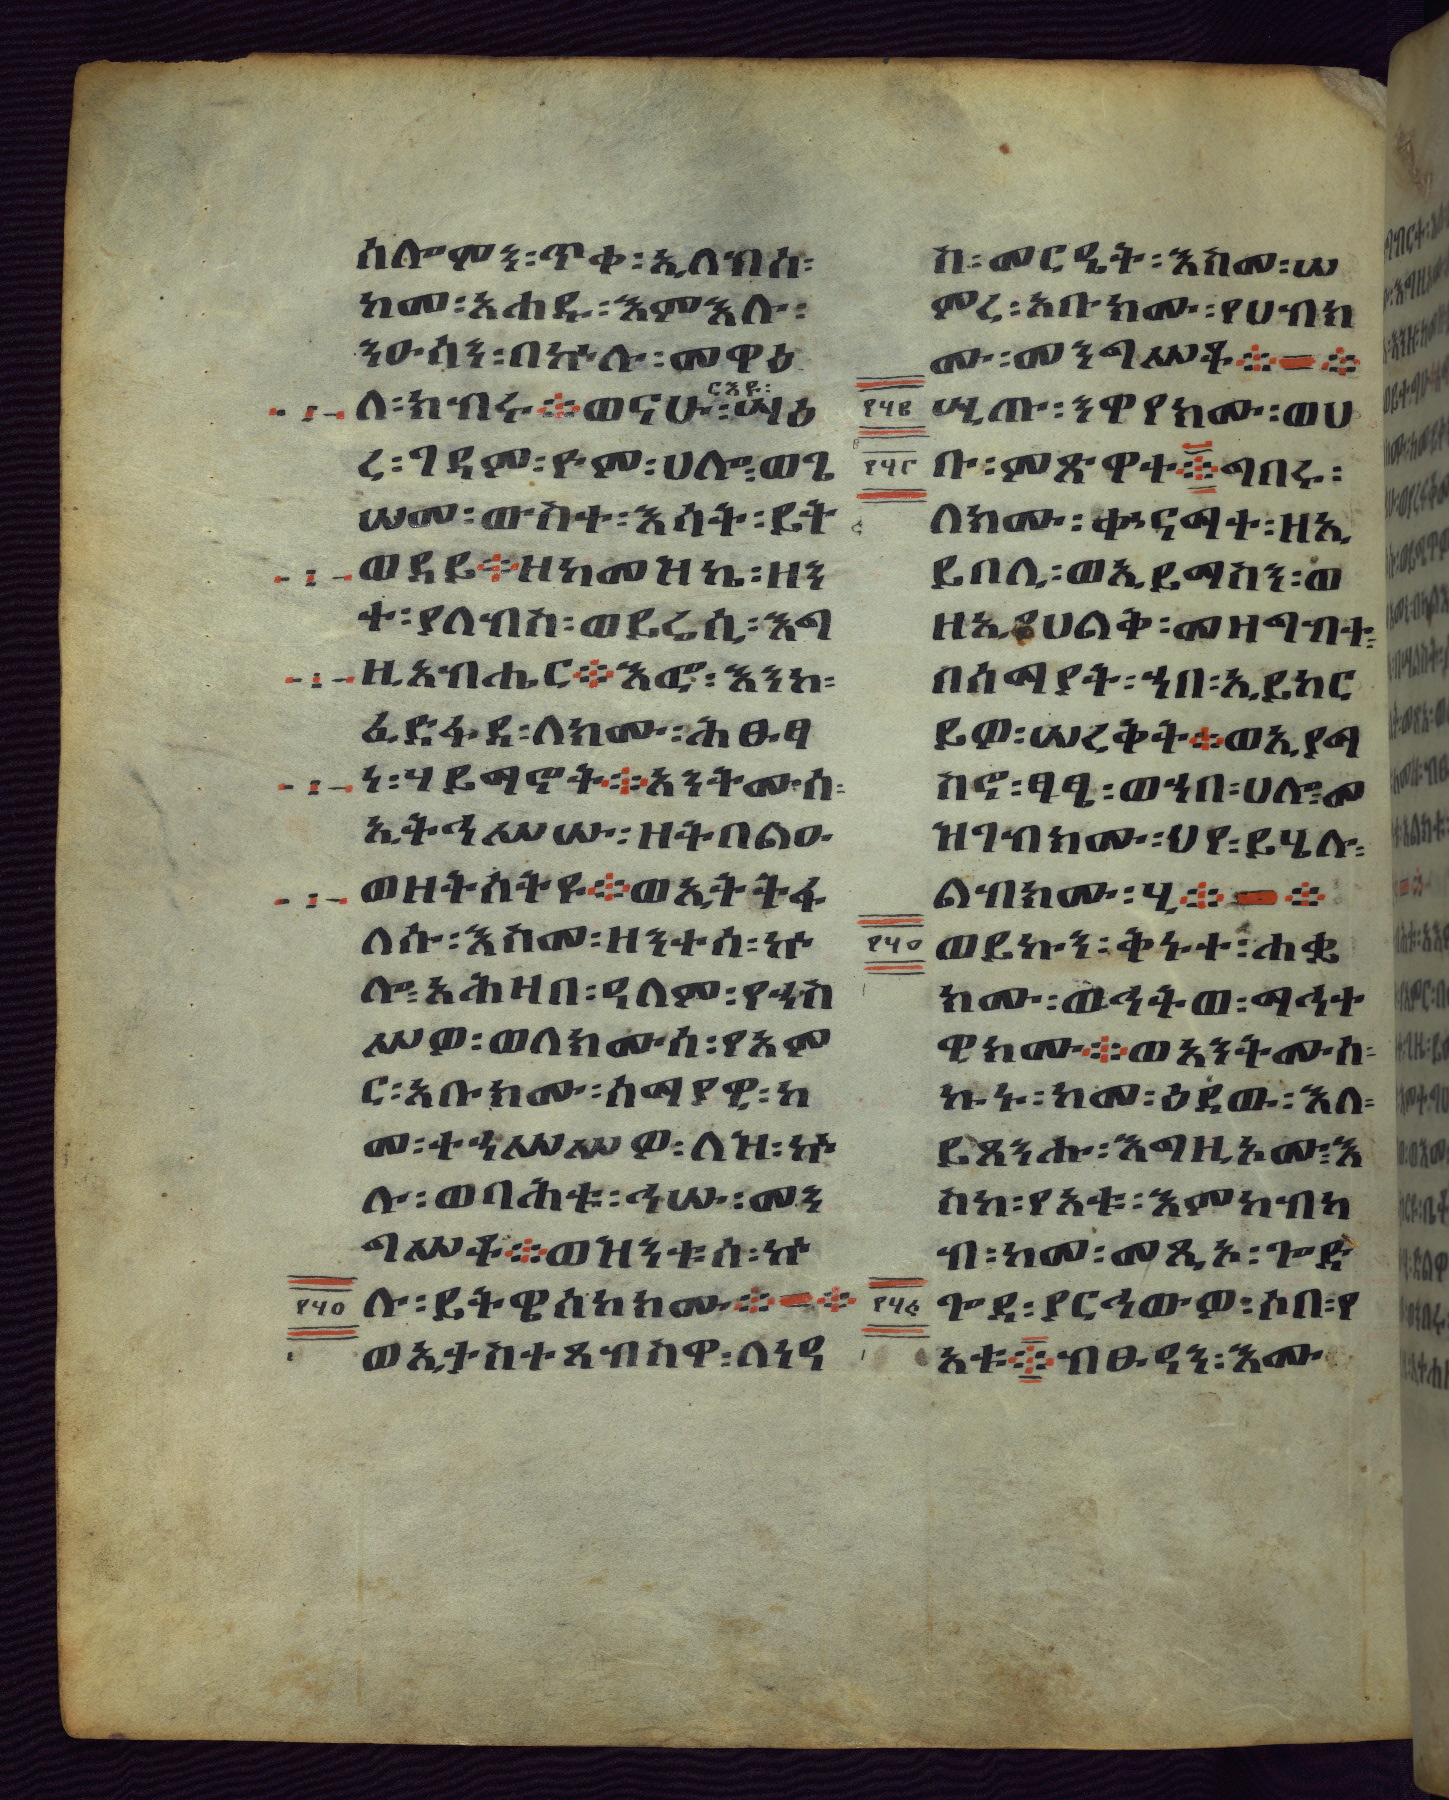 ሰሎምን፡ጥቀ፡ኢለብሰ፡
ከመ፡አሐዱ፡እምእሉ፡
ንዑሳን፡በኵሉ፡መዋዕ
ርእዩ፡
ለ፡ክብሩ፨ወናሁ፡ሣዕ
ረ፡ገዳም፡ዮም፡ሀሎ፡ወጌ
ሠመ፡ውስተ፡እሳት፡ይት
ወደይ፨ዘከመዝኬ፡ዘን
ተ፡ያለብስ፡ወይሬሲ፡እግ
ዚአብሔር፨እፎ፡እንከ፡
ፈድፋደ፡ለክሙ፡ሕፁፃ
ነ፡ሃይማኖት፨አንትሙሰ፡
ኢትኅሥሡ፡ዘትበልዑ
ወዘትሰትዩ፨ወኢትትፋ
ለሱ፡እስመ፡ዘንተሰ፡ኵ
ሎ፡አሕዛበ፡ዓለም፡የኀስ
ሥዎ፡ወለክሙሰ፡የአም
ር፡አቡክሙ፡ሰማያዊ፡ከ
መ፡ተኀሥሥዎ፡ለዝ፡ኵ
ሉ፡ወባሕቱ፡ኅሡ፡መን
ግሥቶ፨ወዝንቱሰ፡ኵ
፻፶፬
ሉ፡ይትዌሰከክሙ፨—፨
ወኢተስተጻብስዋ፡ለነዳ
ከ፡መርዔት፡እስመ፡ሠ
ምረ፡አቡክሙ፡የሀብክ
ሙ፡መንግሥቶ፨—፨
ሢጡ፡ንዋየክሙ፡ወሀ
ቡ፡ምጽዋተ፨ግበሩ፡
ለክሙ፡ቍናማተ፡ዘኢ
ይበሊ፡ወኢይማስን፡ወ
ዘኢየሀልቅ፡መዛግብተ፡
በሰማያት፡ኀበ፡ኢይከር
ይዎ፡ሠረቅት፨ወኢያማ
ስኖ፡ፃፂ፡ወኀበ፡ሀሎ፡መ
ዝገብክሙ፡ህየ፡ይሄሉ፡
ልብክሙ፡ሂ፨—፨
ወይኩን፡ቅኑተ፡ሐቌ
ክሙ፡ወኅትወ፡ማኅተ
ዊክሙ፨ወአንትሙሰ፡
ኩኑ፡ከመ፡ዕደው፡እለ፡
ይጸንሑ፡እግዚኦሙ፡እ
ስከ፡የአቱ፡እምከብካ
ብ፡ከመ፡መጺኦ፡ጐድ
ጐደ፡ያርኅውዎ፡ሶበ፡የ
አቱ፨ብፁዓን፡እሙ